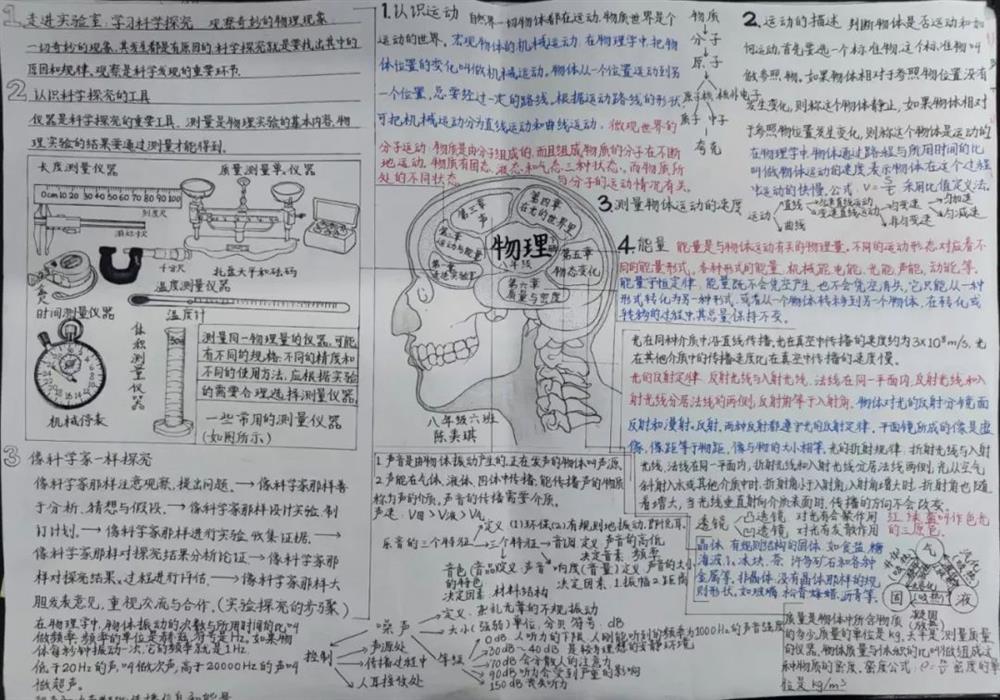 1 走进实验室:学习科学探究 观察奇妙的物理现象
一切奇妙的现象,其发生都是有原因的,科学探究就是要找出其中的
原因和规律、观察是科学发现的重要环节.
2 认识科学探究的工具
仪器是科学探究的重要工具、测量是物理实验的基本内容,物
理实验的结果要通过测量才能得到.
长度测量仪器 质量测量单仪器
0cm 10 20 30 40 50 60 70 80 90 100
刻度尺
游标卡尺
千分尺
托盘天平和砝码
温度测量仪器
时间测量仪器
温度计
体积测量仪器
机械停表
测量同一物理量的仪器,可能
有不同的规格、不同的精度和
不同的使用方法,应根据实验
的需要合理选择测量仪器.
一些常用的测量仪器
(如图所示)
3 像科学家一样探究
像科学家那样注意观察,提出问题.→像科学家那样善
于分析、猜想与假设.→像科学家那样设计实验、制
订计划.→像科学家那样进行实验、收集证据.→
像科学家那样对探究结果分析论证→像科学家那
样对探究结果、过程进行评估.→像科学家那样大
胆发表意见,重视交流与合作.(实验探究的方案)
在物理学中,物体振动的次数与所用时间的比叫
做频率.频率的单位是赫兹,符号是Hz.如果物
体每秒钟振动一次,它的频率就是1Hz.
低于20Hz的声叫做次声,高于20000Hz的声叫
做超声.
1.认识运动 自然界一切物体都在运动.物质世界是个
运动的世界. 宏观物体的机械运动 在物理学中,把物
体位置的变化叫做机械运动,物体从一个位置运动到另
一个位置,总要经过一定的路线,根据运动路线的形状
可把机械运动分为直线运动和曲线运动. 微观世界的
分子运动:物质是由分子组成的,而且组成物质的分子在不断
地运动,物质有固态、液态和气态三种状态,而物质所
处的不同状态 与分子的运动情况有关.
物质
分子
原子
原子核 核外电子
质子 中子
夸克
2.运动的描述 判断物体是否运动和如
何运动,首先要选一个标准物,这个标准物叫
做参照物,如果物体相对于参照物位置没有
发生变化,则称这个物体静止,如果物体相对
于参照物位置发生变化,则称这个物体是运动的
在物理学中,物体通过路程与所用时间的比
叫做物体运动的速度,表示物体在这个过程
中运动的快慢,公式:V=s/t 采用比值定义法.
3.测量物体运动的速度
运动 直线 匀速直线运动
变速直线运动 匀变速 匀加速
匀减速
非匀变速
曲线
4.能量 能量是与物体运动有关的物理量,不同的运动形态对应着不
同的能量形式,各种形式的能量、机械能、电能、光能、声能、动能、等.
能量守恒定律:能量既不会凭空产生,也不会凭空消失,它只能从一种
形式转化为另一种形式,或者从一个物体转移到另一个物体,在转化或
转移的过程中,其总量保持不变.
第一章
走进实验室
第二章
运动与能量
第三章
声
第四章
在光的世界里
第五章
物态变化
第六章
质量与密度
物理
八年级
八年级六班
陈美琪
光在同种介质中沿直线传播,光在真空中传播的速度约为3×10⁸m/s,光
在其他介质中的传播速度比在真空中传播的速度慢.
光的反射定律:反射光线与入射光线、法线在同一平面内,反射光线和入
射光线分居法线的两侧,反射角等于入射角. 物体对光的反射分镜面
反射和漫射反射,两种反射都遵守光的反射定律.平面镜所成的像是虚
像,像距等于物距,像与物的大小相等.光的折射规律:折射光线与入射
光线、法线在同一平面内,折射光线和入射光线分居法线两侧,光从空气
斜射入水或其他介质中时,折射角小于入射角,入射角增大时,折射角也随
着增大,当光线垂直射向介质表面时,传播的方向不会改变.
透镜 凸透镜 对光有会聚作用
凹透镜 对光有发散作用
红、绿、蓝叫作色光
的三原色.
晶体:有规则结构的固体.如食盐、糖
海波、冰块、萘、许多矿石和各种
金属等.非晶体:没有晶体那样的规
则形状.如玻璃、松香、蜂蜡、沥青等.
气
固
液
凝固
质量是物体中所含物质
的多少,质量的单位是kg,天平是测量质量
的仪器,物体质量与体积的比叫做组成这
种物质的密度,密度公式
位是kg/m³
1 声音是由物体振动产生的,正在发声的物体叫声源.
2 声能在气体、液体、固体中传播,能传播声的物质
称为声的介质,声音的传播需要介质.
声速:V固>V液>V气
乐音的三个特征 定义:(1)环保(2)有规则地振动,即悦耳.
三个特征 音调 定义:声音的高低
决定音素:频率
音色(音品)定义:声音的特色
决定因素:材料结构
响度(音量)定义:声音的大小
决定因素:1.振幅 2.距离
噪声 定义:杂乱无章的不规振动
大小(强弱)单位,分贝 符号:dB
等级 0dB 人听力的下限,人刚能听到的频率为1000Hz的声音强度
30dB~40dB 是较为理想的安静环境
70dB 会分散人的注意力
90dB 听力会受到严重的影响
150dB 丧失听力
控制 声源处
传播过程中
人耳接收处